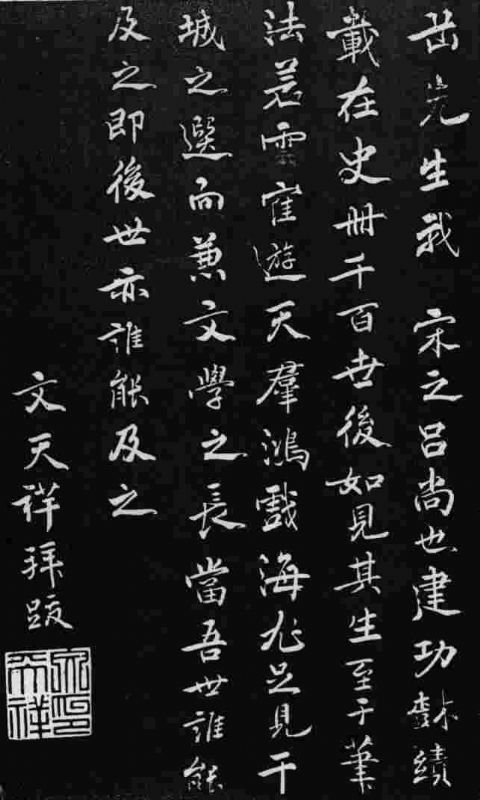 岳先生我 宋之呂尚也建功樹績
載在史冊千百世後如見其生至于筆
法若雲寉遊天羣鴻戲海尤足見干
城之選而兼文學之長當吾世誰能
及之即後世亦誰能及之
文天祥拜跋
文天祥印